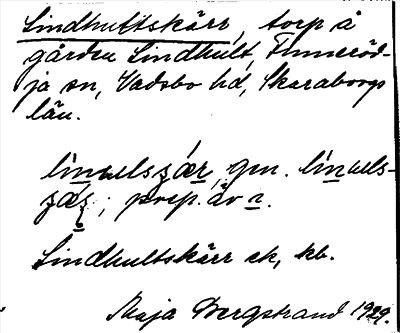 Lindhultskärr, torp å
gården Lindhult, Finneröd-
ja sn, Vadsbo hd, Skaraborgs
län.
gen.
; prep. äv
Lindhultskärr ek, kb.
Maja Bergstrand 1929.